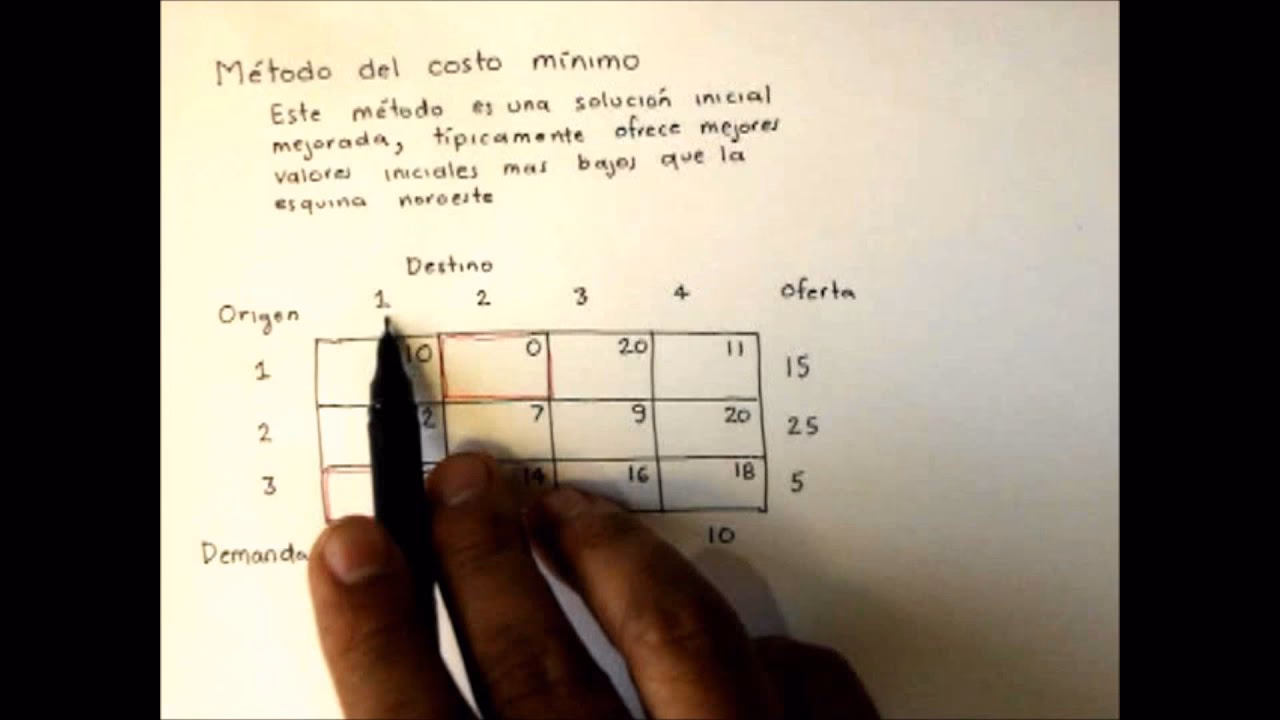 Método del costo mínimo
Este método es una solución inicial
mejorada, típicamente ofrece mejores
valores iniciales mas bajos que la
esquina noroeste
Destino
Origen 1 2 3 4 Oferta
1 10 0 20 11 15
2 2 7 9 20 25
3 14 16 18 5
Demanda 10